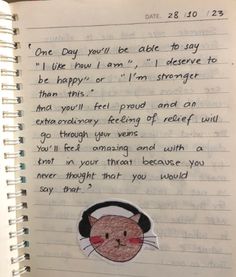 DATE 28/10/23
"One Day you'll be able to say
"I like how I am", "I deserve to
be happy" or "I'm stronger
than this."
And you'll feel proud and an
extraordinary feeling of relief will
go through your veins
You'll feel amazing and with a
knot in your throat because you
never thought that you would
say that"